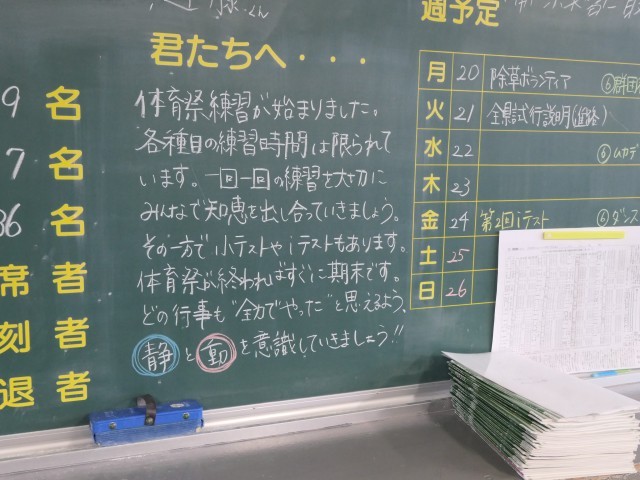 君たちへ・・・
体育祭練習が始まりました。
各種目の練習時間は限られて
います。一回一回の練習を大切に
みんなで知恵を出し合っていきましょう。
その一方で小テストやiテストもあります。
体育祭が終わればすぐに期末です。
どの行事も"全力でやった"と思えるよう、
静と動を意識していきましょう!!
9 名
7 名
36 名
席 者
刻 者
退 者
週予定
月 20 除草ボランティア ⑥群団
火 21
水 22 ⑥ムカデ
木 23
金 24 第2回iテスト ⑥ダンス
土 25
日 26